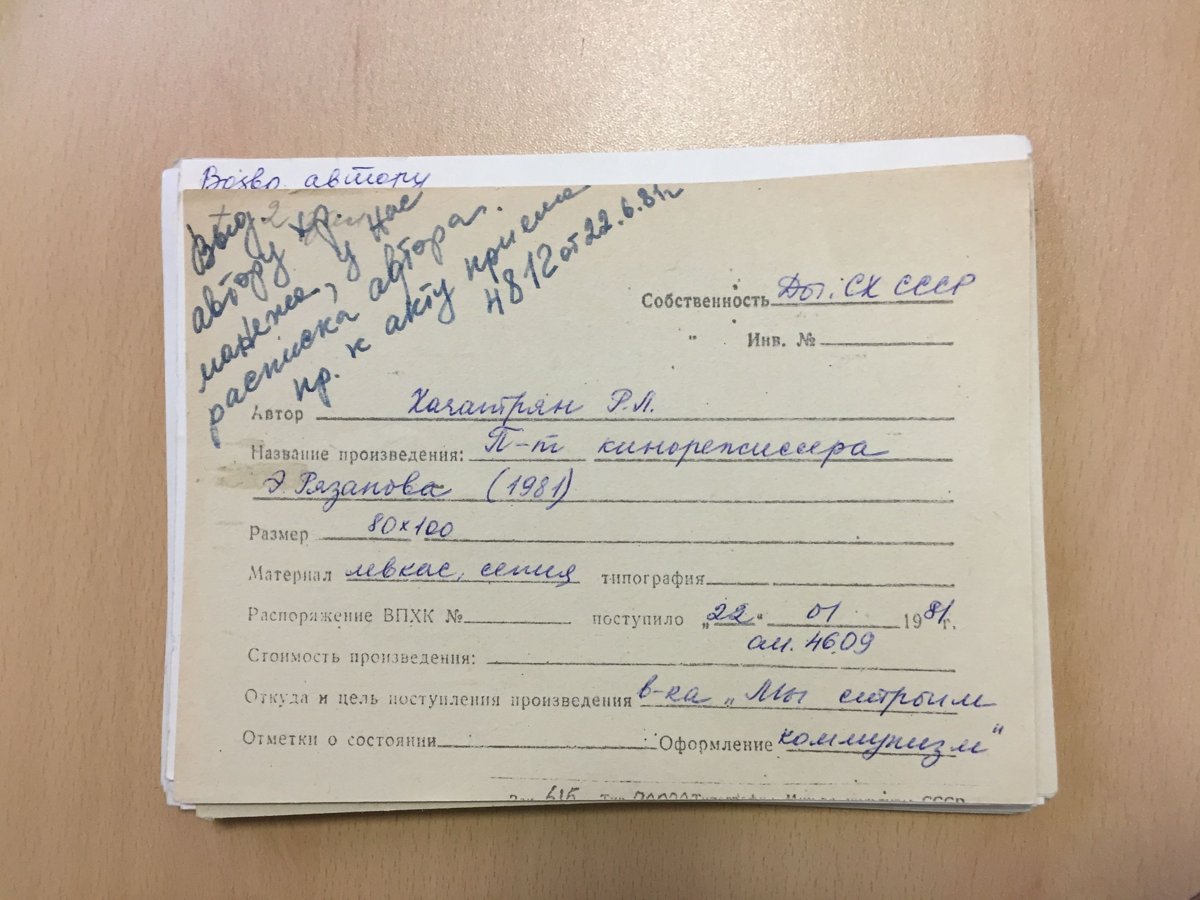 Возвр. автору
Выд.
автору хр.
манежа, у нас
расписка автора.
пр. к акту приема
4812 от 22.6.81г
Собственность Ды. СХ СССР
" Инв. №
Автор Хачатрян Р.Л.
Название произведения: П-т кинорежиссера
Э. Рязанова (1981)
Размер 80×100
Материал левкас, сепия типография
Распоряжение ВПХК № поступило „22" 01 1981г.
ам. 4609
Стоимость произведения:
Откуда и цель поступления произведения в-ка „Мы строим
Отметки о состоянии Оформление коммунизм"
Зак. 615